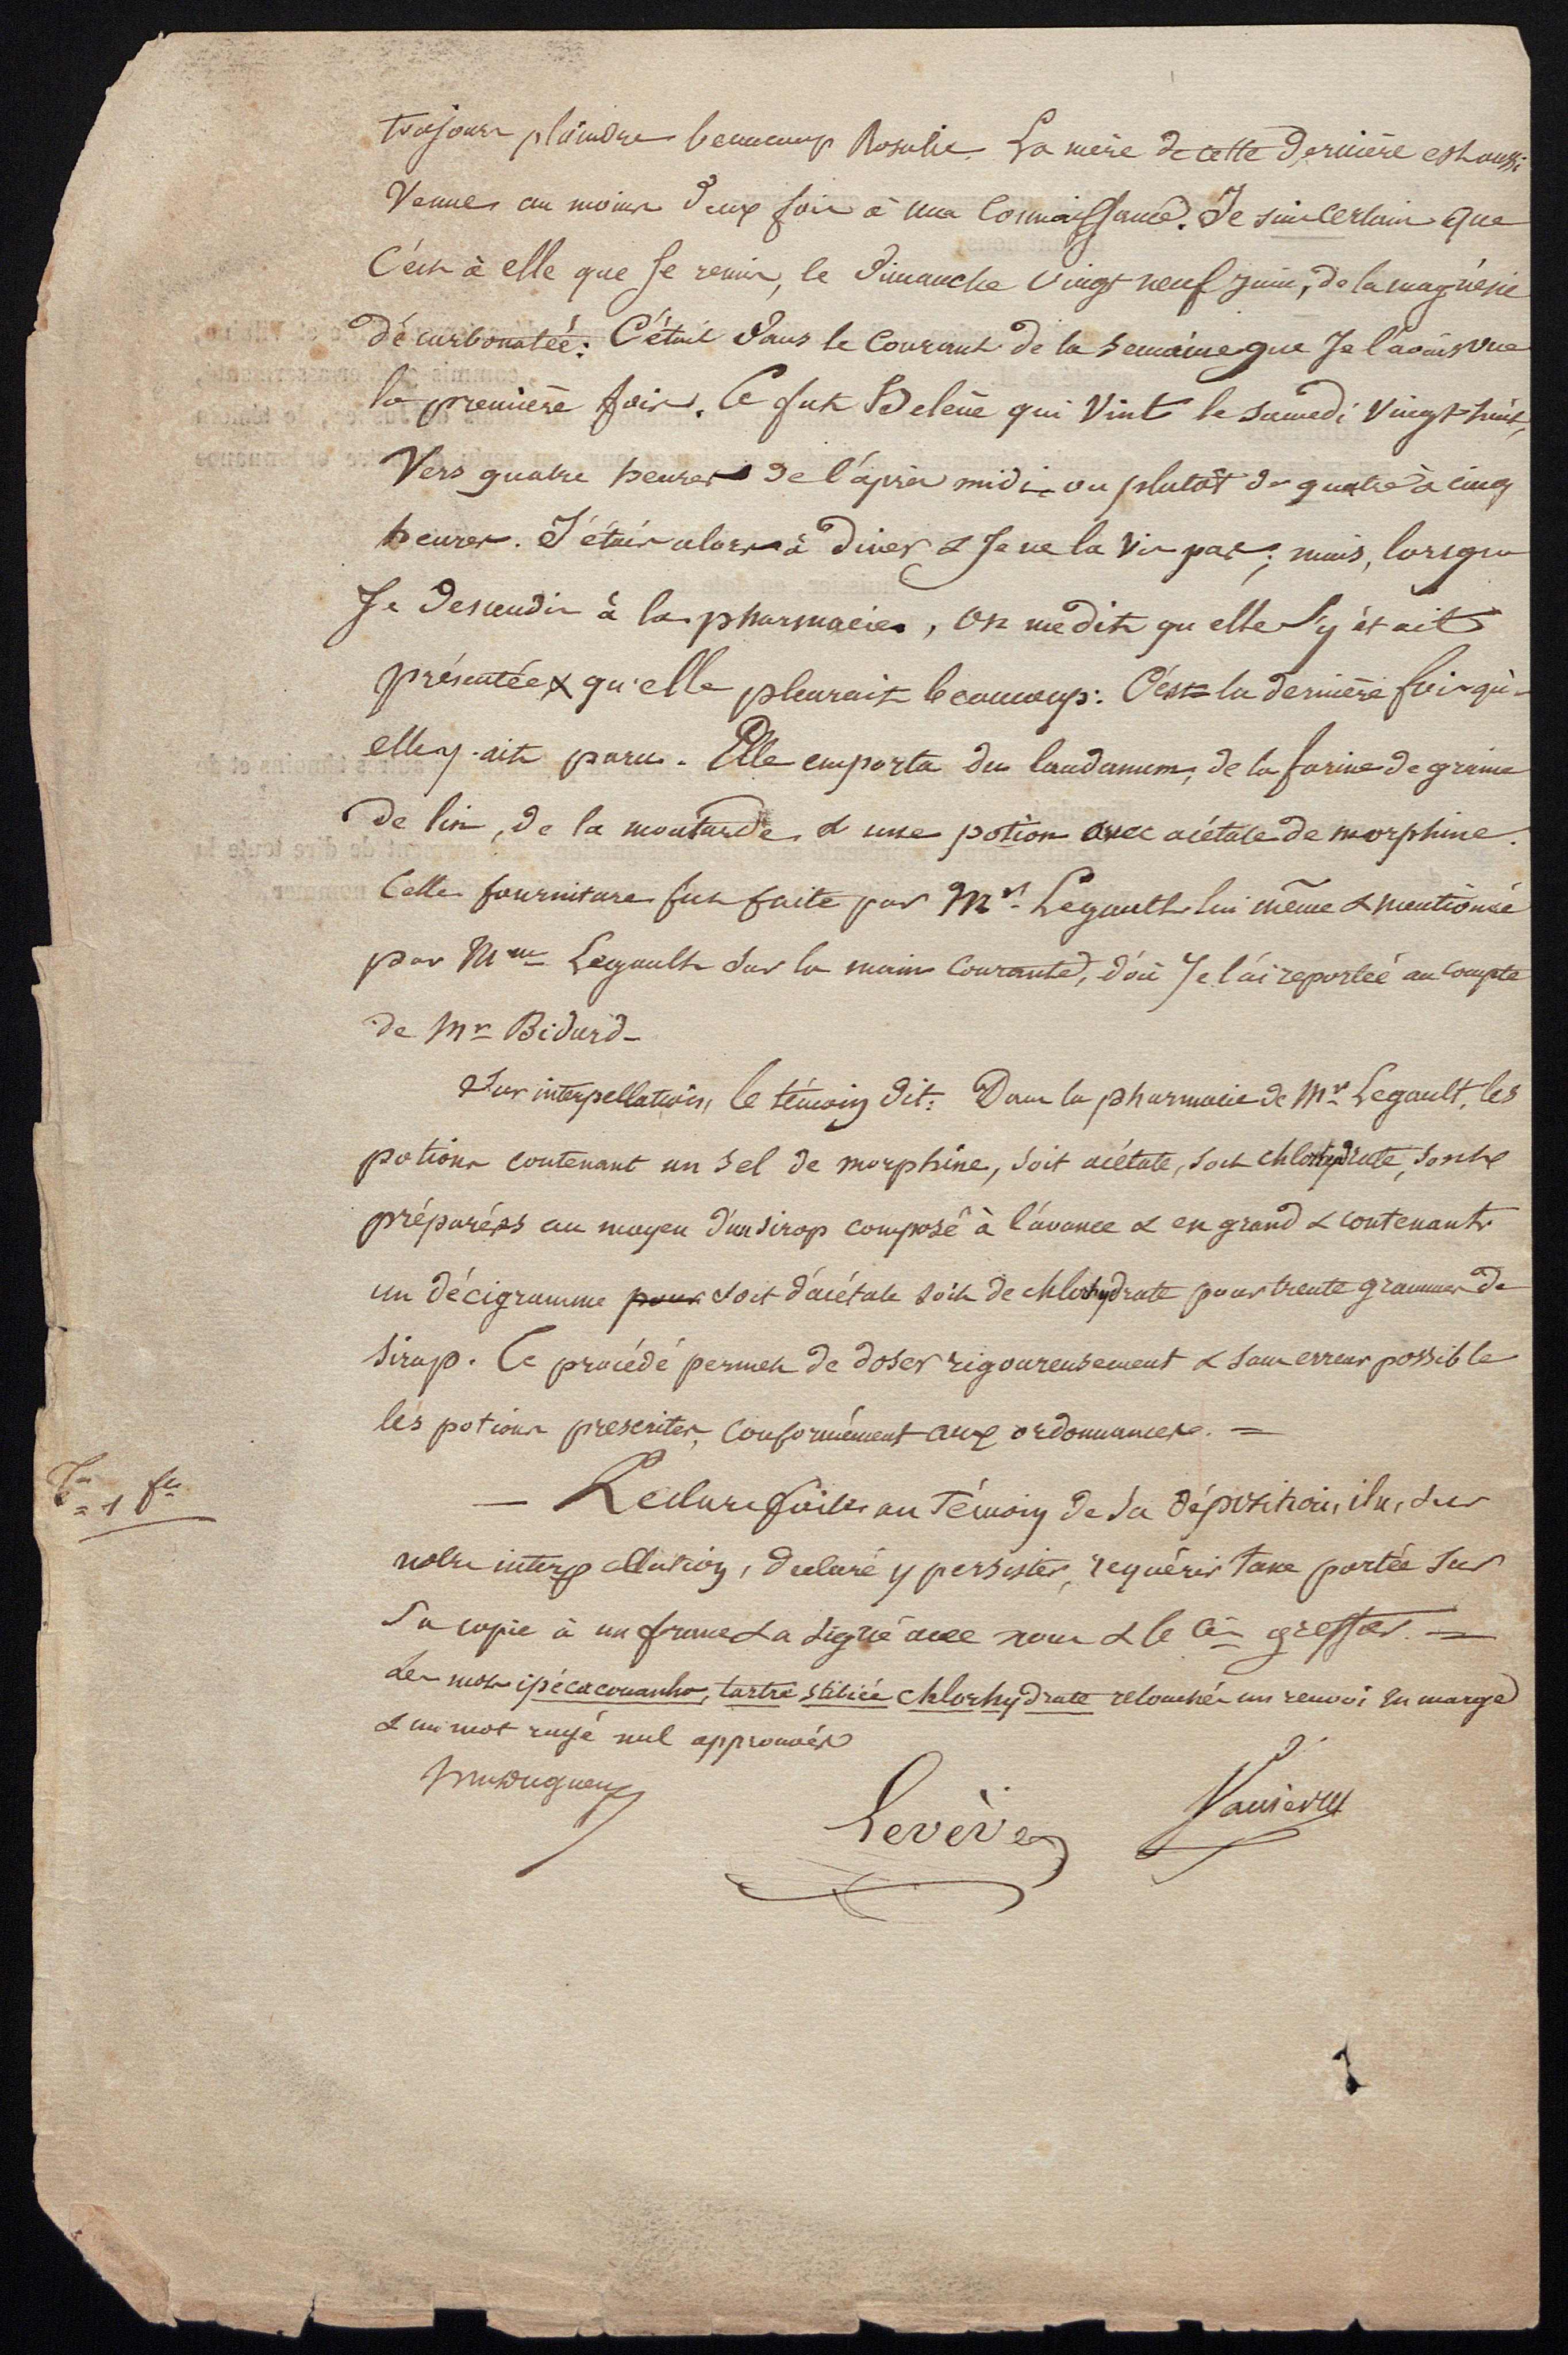 toujours plaindre beaucoup Rosalie. La mère de cette dernière est aussi
venue au moins deux fois à ma connaissance. Je suis certain que
C'est à elle que je remis, le dimanche vingt neuf juin, de la magnésie
décarbonatée: C'était dans le courant de la semaine que Je l'avais vue
la première fois. Ce fut Hélène qui vint le samedi vingt-huit,
Vers quatre heures de l'après midi ou plutôt de quatre à cinq
heures. J'étais alors à diner & Je ne la vis pas; mais, lorsque
Je descendis à la pharmacie, on me dit qu'elle s'y était
présentée & qu'elle pleurait beaucoup: C'est la dernière fois qu'-
elle y ait paru. Elle emporta du laudanum, de la farine de graine
de lin, de la moutarde & une potion avec acétate de morphine.
Cette fourniture fut faite par Mr. Legault lui même & mentionnée
par Mme Legault sur la main courante, d'où Je l'ai reportée au compte
de Mr Bidard-
Sur interpellation, le témoin dit: Dans la pharmacie de Mr Legault, les
potions contenant un sel de morphine, soit acétate, soit chlorhydrate, sont
préparées au moyen d'un sirop composé à l'avance & en grand & contenant
un décigramme pour soit d'acétate soit de chlorhydrate pour trente grammes de
sirop. Ce procédé permet de doser rigoureusement & sans erreur possible
les potions prescrites, conformément aux ordonnances. =
— Lecture faite au Témoin de sa déposition, il a, sur
notre interpellation, declaré y persister, requérir taxe portée sur
Sa copie à un franc & a signé avec nous & le Cis greffier. =
Les mots ipécacouanha, tartre stibiée chlorhydrate retouchés un renvoi en marge
& un mot rayé nul approuvés
1 fr
Levève
Vannier